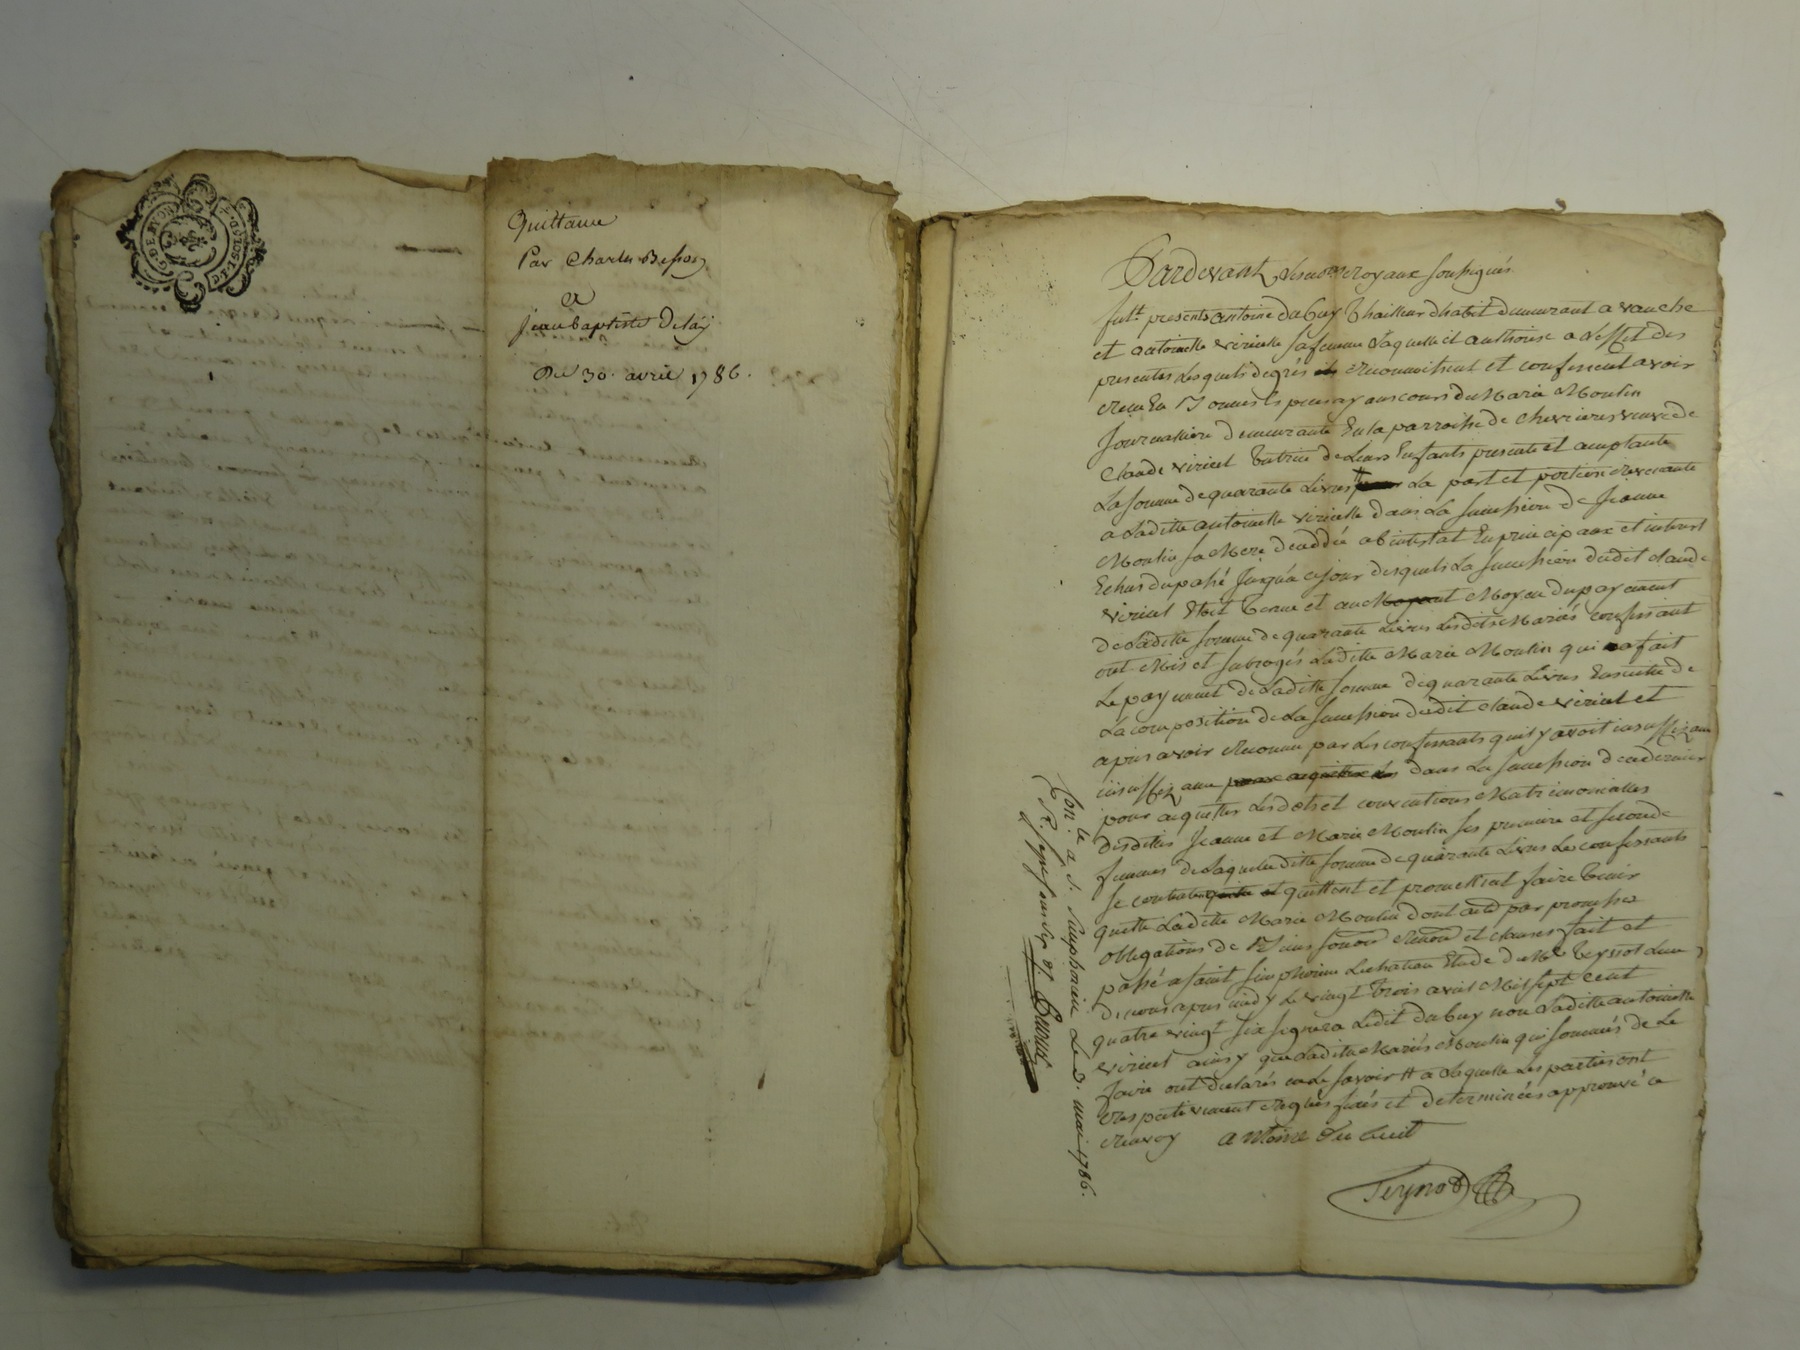 G. DE LYON
DE 1 SOL 8 D.
Quittance
Par Charles Besson
a
jean baptiste Delay
Du 30. avril 1786.
Pardevant les no.res royaux soussignés
fu.tt presents antoine dubuy thailleur dhabit demeurant a vauche
et antoinette viricelle sa femme laquelle il authorise a leffet des
presentes lesquels degrés reconnoissent et confessent avoir
reçu En especes au cours du Marie Moulin
journalliere demeurante En la parroisse de chevrieres veuve de
claude viricel tutrice de leurs Enfants presente et acceptante
la somme de quarante livres # pour la part et portion revenante
a laditte antoinette viricelle dans la succession de jeanne
Moulin sa Mere decedée ab intestat En principaux et interest
Echus du passé jusqu'a ce jour desquels la succession dudit claude
viricel Etoit tenue et au Moyent Moyen du payement
de laditte somme de quarante livres lesdits Mariés confessant
ont Mis et subrogés laditte Marie Moulin qui a fait
le payement de laditte somme de quarante livres Ensuitte de
la composition de la succession dudit claude viricel et
apres avoir reconnu par les confessants quil y avoit insuffizance
insuffizance pour acquitter les dans la succession de ce dernier
pour acquitter les dots et conventions Matrimonialles
desdittes jeanne et Marie Moulin ses premiere et seconde
femmes de laquelle ditte somme de quarante livres les confessants
se contentent quitte et quittent et promettent faire tenir
quitte laditte Marie Moulin dont acte par promesses
obligations de et clauses fait et
passé a saint simphorien le chateau Etude de M.e teynot l'un
de nous apres midy le vingt trois avril Mil sept cent
quatre vingt six signera ledit dubuy non laditte antoinette
viricel ainsy que laditte Marie Moulin qui sommés de le
faire ont declarés ne le savoir # a laquelle les parties ont
respectivement reglés fixés et determinées approuvé ce
renvoy antoine du buit
Teynot
Con.lé a S. Simphorien le 3. mai 1786.
R. sept sous six d.